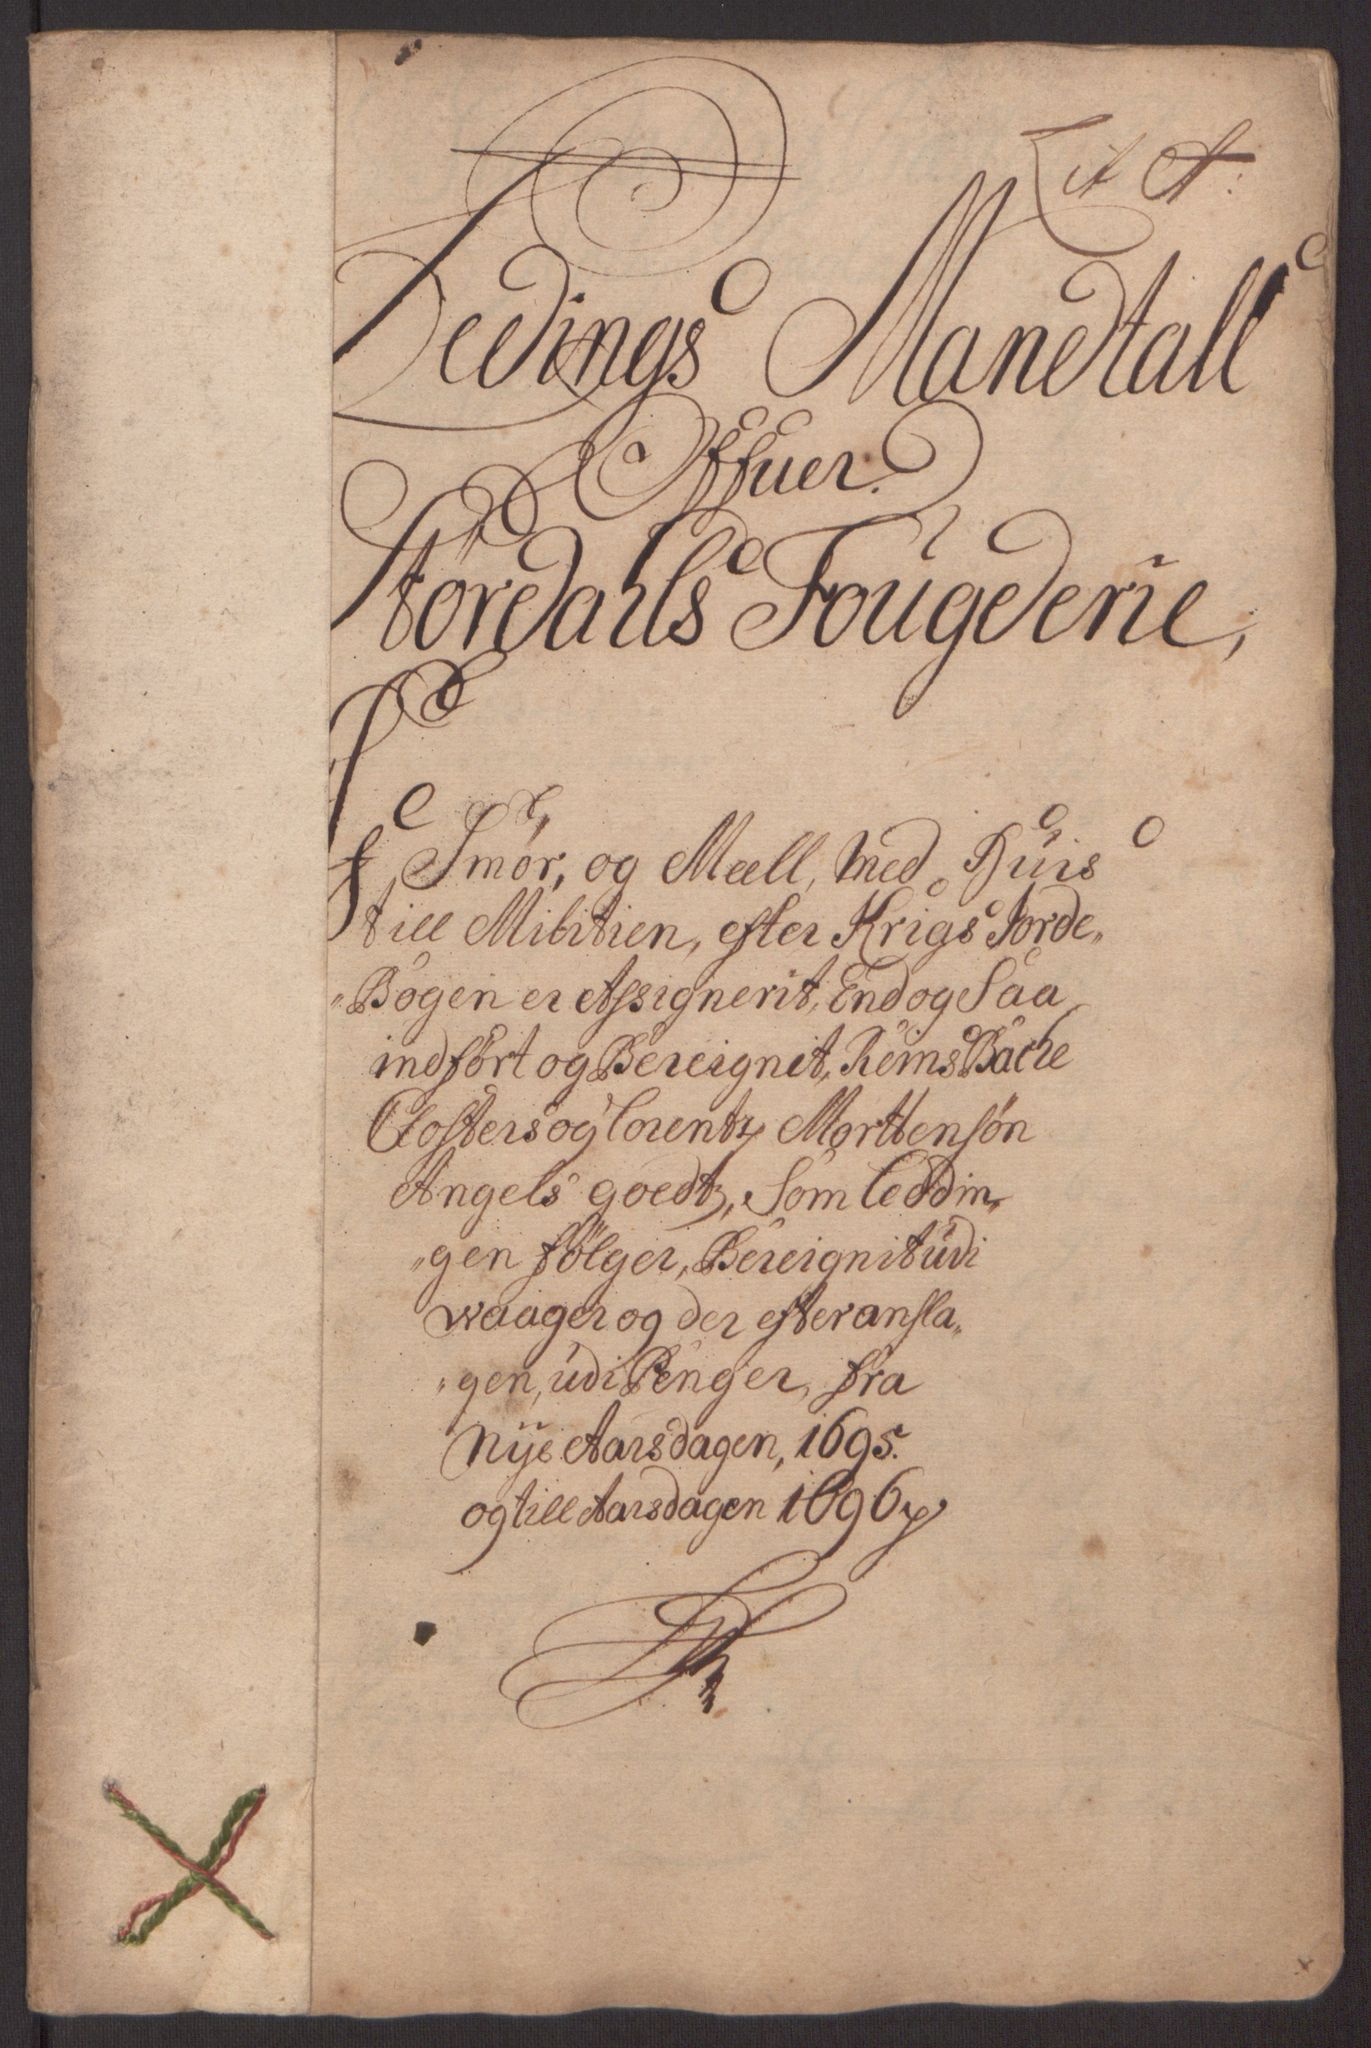 Lit A:
Ledings Mandtall
Offuer
Størdalls Fougderie,
Smør, og Meell, med Huis
till Militien, efter Krigs Jorde„
„Bogen er Assignerit, End og Saa
indført og Bereignet, Reins Bache
Closters og Lorentz Morttensøn
Angels goedtz, Som Leddin„
„gen følger, Bereignit udi
waager og der efter ansla„
„gen, udi Penger, fra
Nye Aarsdagen, 1695.
og till Aarsdagen 1696